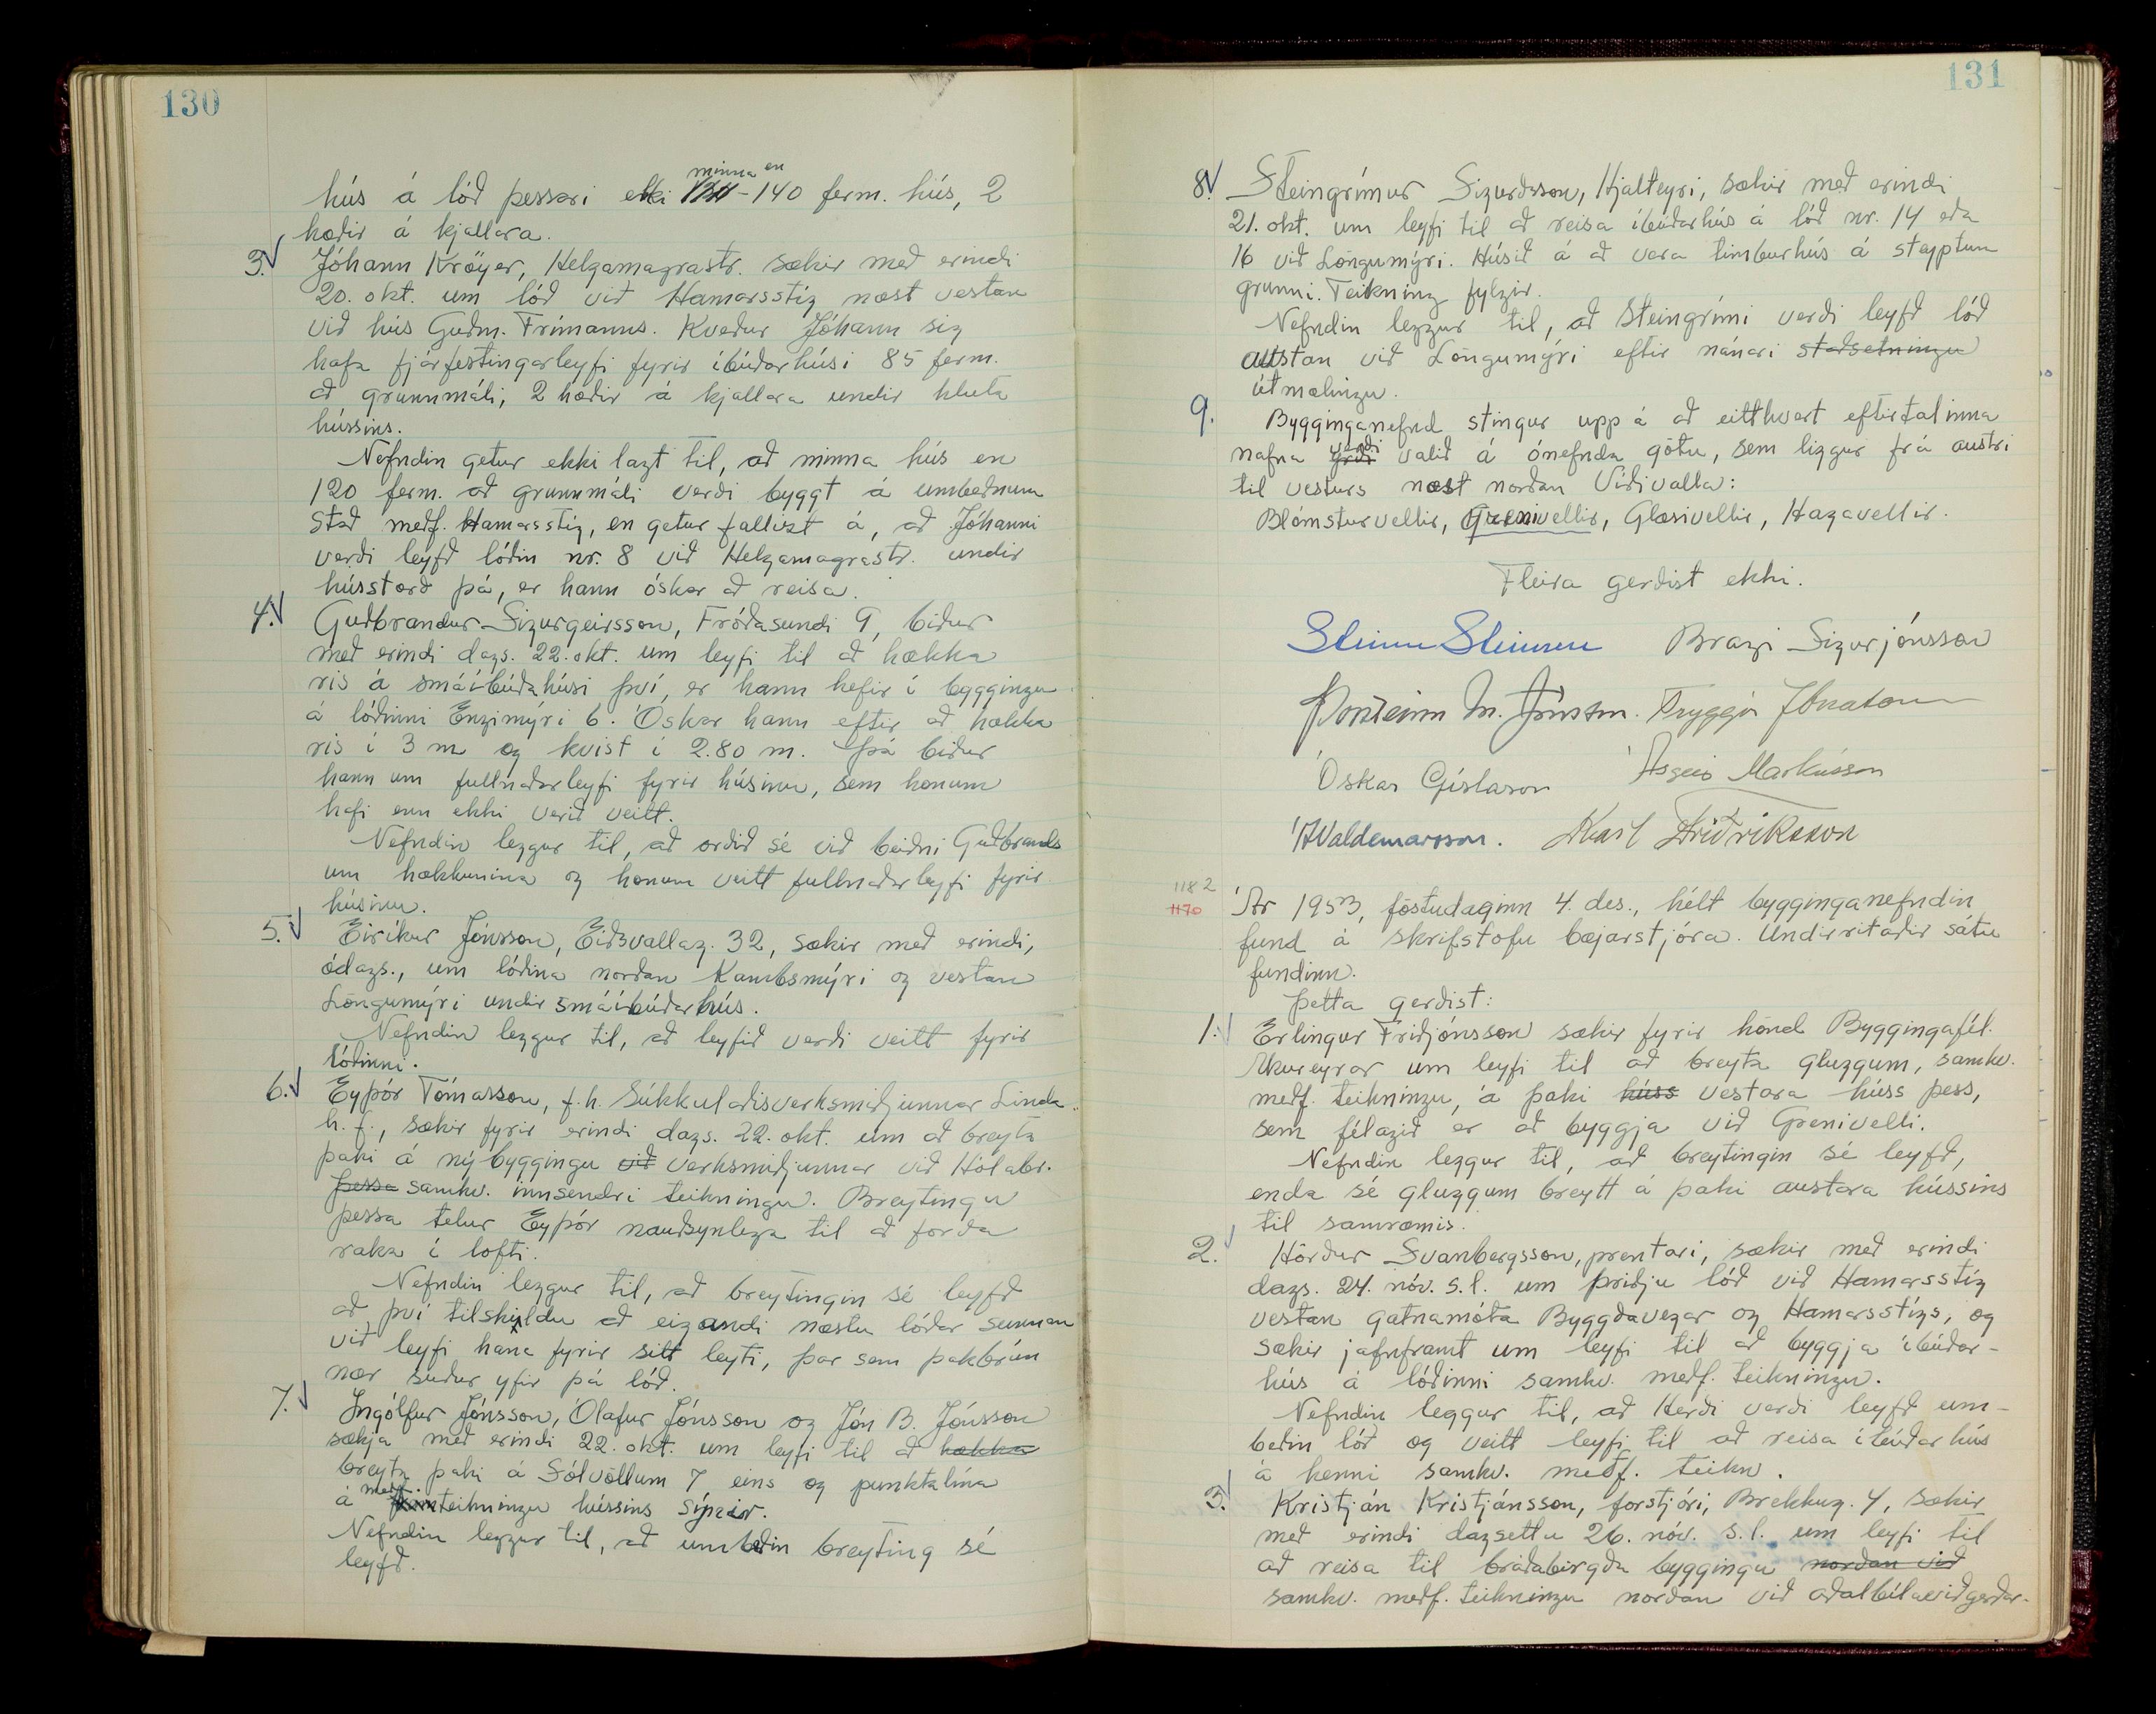 130
hús á lóð þessari ekki minna en 140 ferm. hús, 2
hæðir á kjallara.
3. Jóhann Kröyer, Helgamagrastr. sækir með erindi
20. okt. um lóð við Hamarsstíg næst vestan
við hús Guðm. Frímanns. Kveður Jóhann sig
hafa fjárfestingarleyfi fyrir íbúðarhúsi 85 ferm.
að grunnmáli, 2 hæðir á kjallara undir hluta
hússins.
Nefndin getur ekki lagt til, að minna hús en
120 ferm. að grunnmáli verði byggt á umbeðnum
stað meðf. Hamarsstíg, en getur fallizt á, að Jóhanni
verði leyfð lóðin nr. 8 við Helgamagrastr. undir
hússtærð þá, er hann óskar að reisa.
4. Guðbrandur Sigurgeirsson, Fróðasundi 9, biður
með erindi dags. 22. okt. um leyfi til að hækka
ris á smáíbúðahúsi því, er hann hefir í byggingu
á lóðinni Engimýri 6. Óskar hann eftir að hækka
ris í 3 m og kvist í 2.80 m. Þá biður
hann um fullnaðarleyfi fyrir húsinu, sem honum
hafi enn ekki verið veitt.
Nefndin leggur til, að orðið sé við beiðni Guðbrands
um hækkunina og honum veitt fullnaðarleyfi fyrir
húsinu.
5. Eiríkur Jónsson, Eiðsvallag. 32, sækir með erindi,
ódags., um lóðina norðan Kambsmýri og vestan
Löngumýri undir smáíbúðarhús.
Nefndin leggur til, að leyfið verði veitt fyrir
lóðinni.
6. Eyþór Tómasson, f.h. Súkkulaðisverksmiðjunnar Linda
h.f., sækir fyrir erindi dags. 22. okt. um að breyta
þaki á nýbyggingu við verksmiðjunnar við Hólabr.
þessa samkv. innsendri teikningu. Breytingu
þessa telur Eyþór nauðsynlega til að forða
raka í lofti.
Nefndin leggur til, að breytingin sé leyfð
að því tilskildu að eigandi næstu lóðar sunnan
við leyfi hana fyrir sitt leyti, þar sem þakbrún
nær suður yfir þá lóð.
7. Ingólfur Jónsson, Ólafur Jónsson og Jón B. Jónsson
sækja með erindi 22. okt. um leyfi til að hækka
breyta þaki á Sólvöllum 7 eins og punktalína
á meðf. teikningu hússins sýnir.
Nefndin leggur til, að umbeðin breyting sé
leyfð.
131
8. Steingrímur Sigurðsson, Hjalteyri, sækir með erindi
21. okt. um leyfi til að reisa íbúðarhús á lóð nr. 14 eða
16 við Löngumýri. Húsið á að vera timburhús á steyptum
grunni. Teikning fylgir.
Nefndin leggur til, að Steingrími verði leyfð lóð
austan við Löngumýri eftir nánari staðsetningu
útmælingu.
9. Bygginganefnd stingur upp á að eitthvert eftirtalinna
nafna verði valið á ónefnda götu, sem liggur frá austri
til vesturs næst norðan Víðivalla:
Blómsturvellir, Grenivellir, Glæsivellir, Hagavellir.
Fleira gerðist ekki.
Steinn Steinsen Bragi Sigurjónsson
Þorsteinn M. Jónsson. Tryggvi Jónatansson
Óskar Gíslason Ásgeir Markússon
Á Valdemarsson. Karl Friðriksson
1182
1170
Ár 1953, föstudaginn 4. des., hélt bygginganefndin
fund á skrifstofu bæjarstjóra. Undirritaðir sátu
fundinn.
Þetta gerðist:
1. Erlingur Friðjónsson sækir fyrir hönd Byggingafél.
Akureyrar um leyfi til að breyta gluggum, samkv.
meðf. teikningu, á þaki húss vestara húss þess,
sem félagið er að byggja við Grenivelli.
Nefndin leggur til, að breytingin sé leyfð,
enda sé gluggum breytt á þaki austara hússins
til samræmis.
2. Hörður Svanbergsson, prentari, sækir með erindi
dags. 24. nóv. s.l. um þriðju lóð við Hamarsstíg
vestan gatnamóta Byggðavegar og Hamarsstígs, og
sækir jafnframt um leyfi til að byggja íbúðar-
hús á lóðinni samkv. meðf. teikningu.
Nefndin leggur til, að Herði verði leyfð um-
beðin lóð og veitt leyfi til að reisa íbúðarhús
á henni samkv. meðf. teikn.
3. Kristján Kristjánsson, forstjóri, Brekkug. 4, sækir
með erindi dagsettu 26. nóv. s.l. um leyfi til
að reisa til bráðabirgða byggingu norðan við
samkv. meðf. teikningu norðan við aðalbílaviðgerðar-